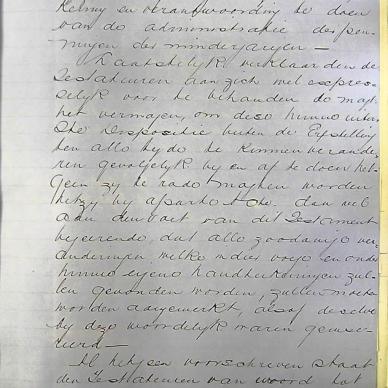 kening en verantwoording te doen
van de administratie der pen-
ningen der minderjarigen —
Laatstelijk verklaarden de
Testateuren aan zich wel expres-
selyk voor te behouden de magt
het vermogen, om deze hunne uiter-
ste Dispositie buiten de Erfstelling
ten allen tyde te kunnen verande-
ren gevolgelyk by en af te doen het-
geen zy te rade mogten worden
hetzy by aparte Acte dan wel
aan den voet van dit Testament
begeerende, dat alle zoodanige ver-
anderingen welke in dier voege en onder
hunne eigene handtekeningen zul-
len gevonden worden, zullen moeten
worden aangemerkt, alsof dezelve
by deze woordelyk waren geinse-
reerd —
Al hetgeen voorschreven staat
den Testateuren van woord tot